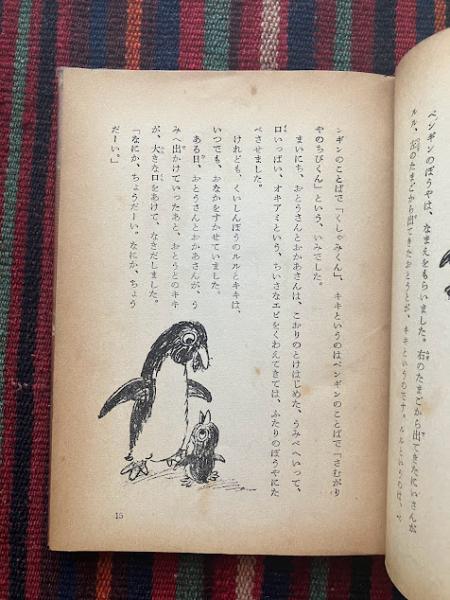 ペンギンのぼうやは、なまえをもらいました。右のたまごから出てきたにいさんが
ルル、左のたまごから出てきたおとうとが、キキというのです。ルルというのは、ペ
ンギンのことばで「くしゃみくん」、キキというのはペンギンのことばで「さむがり
やのちびくん」という、いみでした。
まいにち、おとうさんとおかあさんは、こおりのとけはじめた、うみべへいって、
口いっぱい、オキアミという、ちいさなエビをくわえてきては、ふたりのぼうやにた
べさせました。
けれども、くいしんぼうのルルとキキは、
いつでも、おなかをすかせていました。
ある日、おとうさんとおかあさんが、う
みへ出かけていったあと、おとうとのキキ
が、大きな口をあけて、なきだしました。
「なにか、ちょうだーい。なにか、ちょう
だーい。」
15